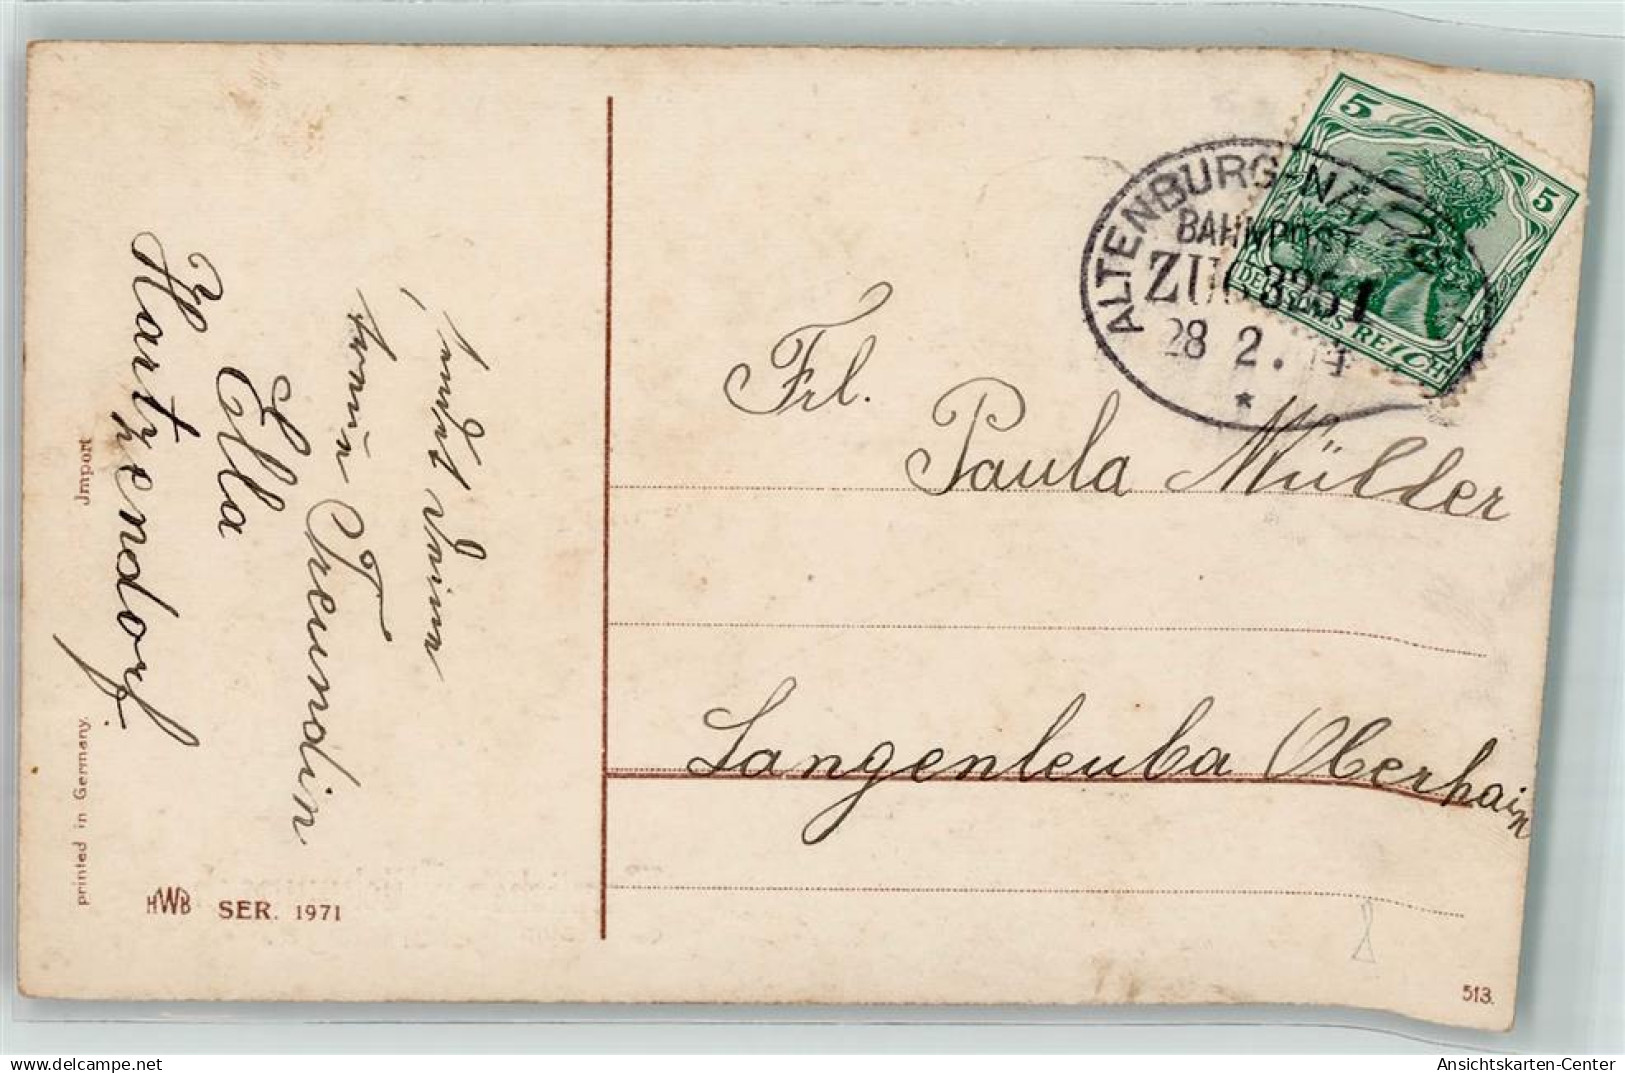 sendet Deine
treue Freundin
Ella
Hartzendorf
Jmport
printed in Germany.
HWB SER. 1971
5
5
DEUTSCHES REICH
ALTENBURG-
BAHNPOST
ZUG 3251
28 2. 14
*
Frl.
Paula Müller
Langenleuba Oberhain
513.
Ansichtskarten-Center